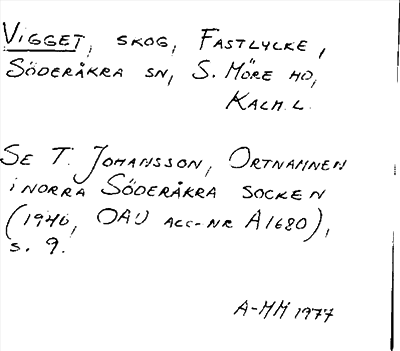 Vigget, skog, Fastlycke,
Söderåkra sn, S. Möre hd,
Kalm. l.
Se T. Johansson, Ortnamnen
i norra Söderåkra socken
(1940, OAU acc-nr A1680),
s. 9.
A-MM 1977